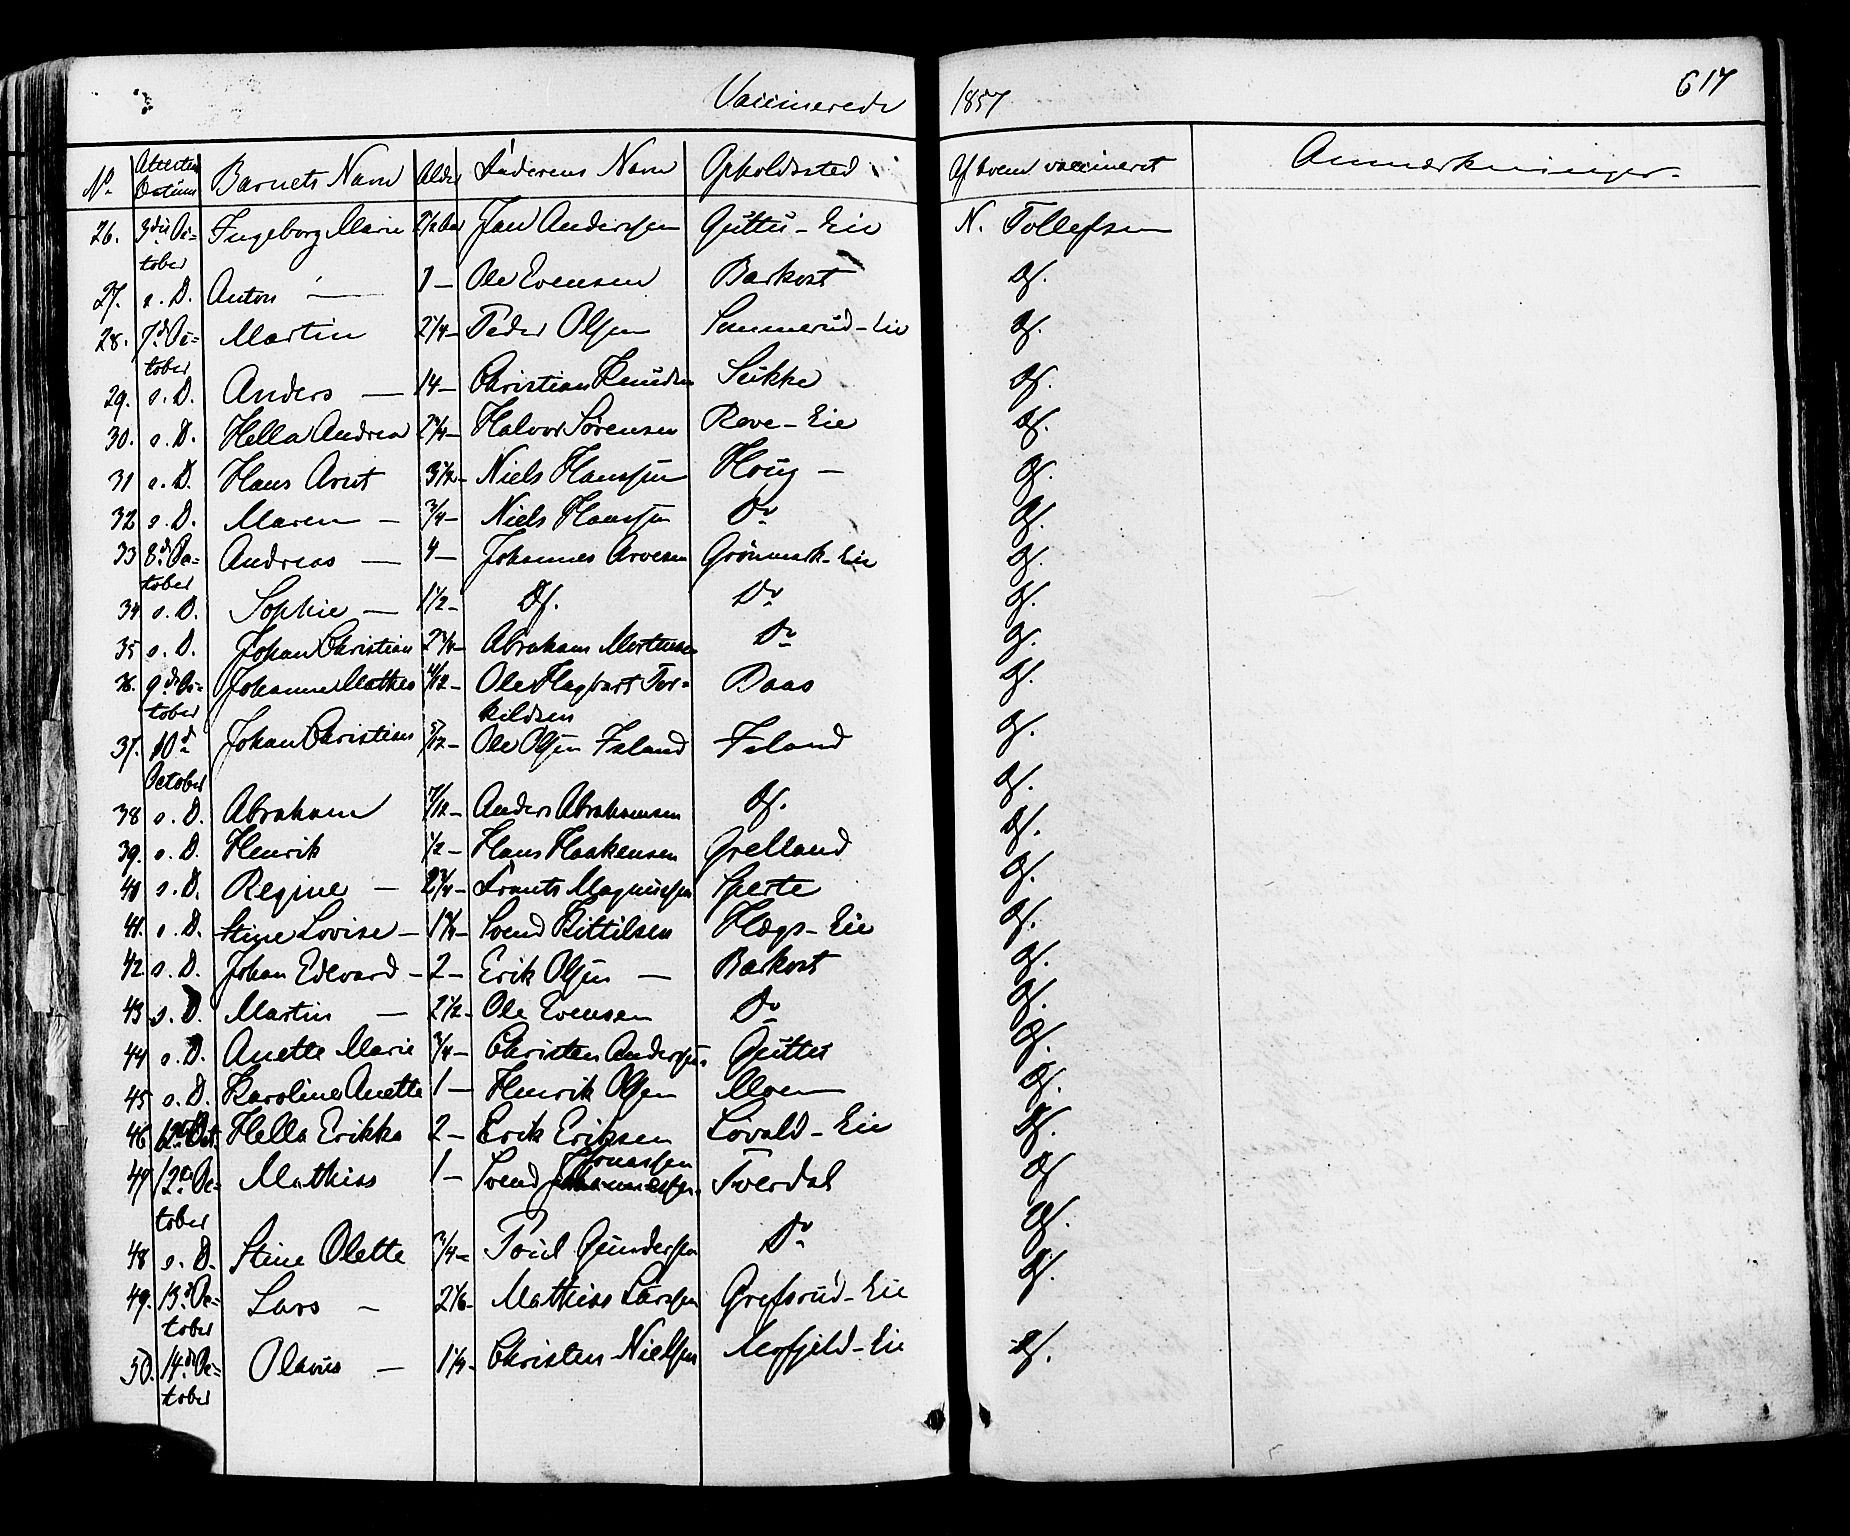 Vaccinerede 1857 617
No. Attestens Datum Barnets Navn Alder Faderens Navn Opholdssted Af hvem vaccineret Anmærkninger.
26. 3die Oc= Ingeborg Marie 2 1/2 Aar Jan Anderssen Guttu - Eie N. Tollefsen
tober
27. s. D. Anton — 1 — Ole Evensen Barkost Df.
28. 7d Oc= Martin 2 1/4 — Peder Olsen Sommerud - Eie Df.
tober
29. s. D. Anders — 14 — Christian Knudsen Sukke Df.
30. s. D. Hella Andrea 2 1/4 — Halvor Sørensen Reve - Eie Df.
31 s. D. Hans Arnt 3 1/2 — Niels Hanssen Houg — Df.
32 s. D. Maren — 3/4 — Niels Hanssen Do Df.
33 8d Oc= Andreas — 4 — Johannes Arvesen Grönmark - Eie Df.
tober
34 s. D. Sophie — 1 1/2 — Df. Do Df.
35 s. D. Johan Christian 2 3/4 — Abraham Mortensen Do Df.
36. 9de Oc= Johanne Mathea /12 — Ole Hagbart Tor= Baas Df.
tober kildsen
37. 10d Johan Christian 5/12 — Ole Olsen Faland Faland Df.
October
38 s. D. Abraham 7/12 — Anders Abrahamsen Df. Df.
39. s. D. Henrik 1/2 — Hans Haakensen Grelland Df.
40 s. D. Regine — 2 3/4 — Frants Magnussen Sperte Df.
41. s. D. Stine Lovise — 1 3/4 — Svend Kittilsen Hægs - Eie Df.
42 s. D. Johan Edevard — 2 — Erik Olsen — Barkost Df.
43 s. D. Martin — 2 1/2 — Ole Evensen Do Df.
44 s. D. Anette Marie 3/4 — Christen Anderssen Guttu Df.
45 s. D. Karoline Anette 1 — Henrik Olsen Moen Df.
46 12d Oct. Hella Erikka 2 — Erik Eriksen Lövald - Eie Df.
47 12d Oc= Mathias 1 — Svend Jonassen Tverdal Df.
tober
48 s. D. Stine Olette 3/4 — Poul Gunderssen Do Df.
49. 13d Oc= Lars — 2 1/6 — Mathias Larssen Grefsrud - Eie Df.
tober
50. 14d Oc= Olaus — 1 1/4 — Christen Nielsen Merfjeld - Eie Df.
tober